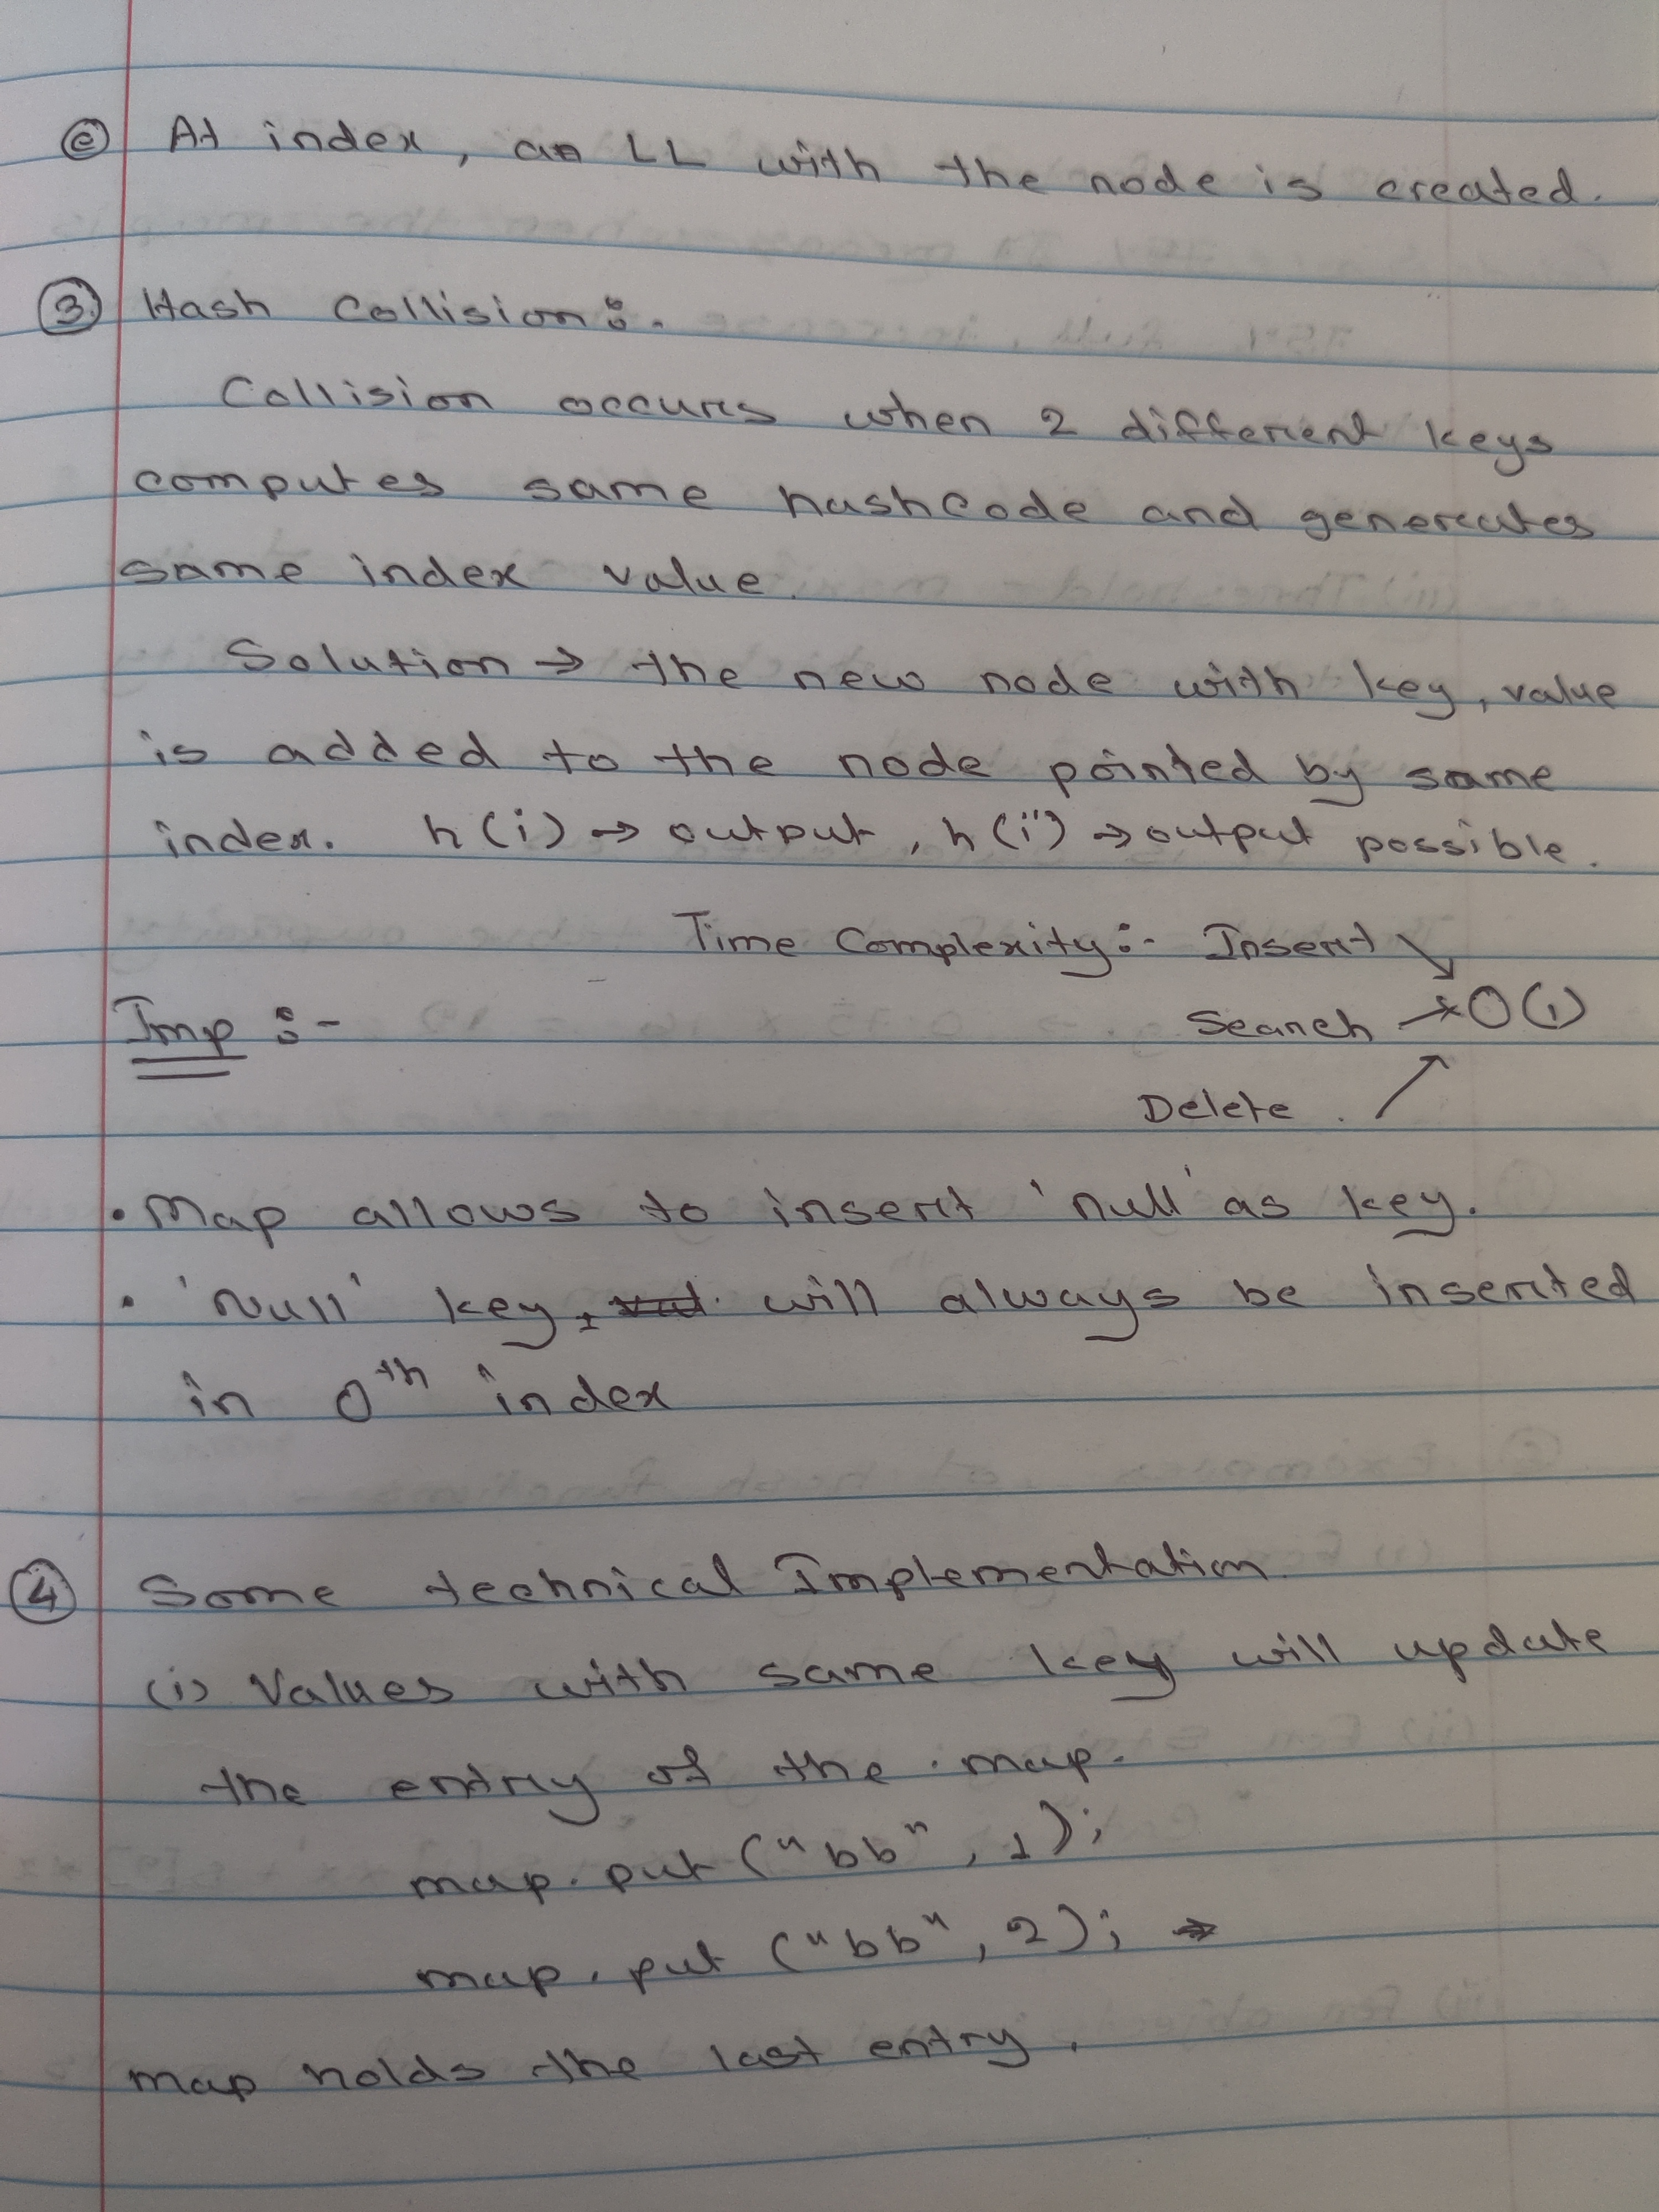 ⓔ At index, an LL with the node is created.
③ Hash Collision:-
Collision occurs when 2 different keys
computes same hashcode and generates
same index value.
Solution → the new node with key, value
is added to the node pointed by same
index. h(i) → output, h(i") → output possible.
Time Complexity:- Insert ↘
Imp :-
Search → O(1)
Delete. ↗
• Map allows to insert 'null' as key.
• 'Null' key, will always be inserted
in 0th index
④ Some technical Implementation
(i) Values with same key will update
the entry of the map.
map.put ("bb", 1);
map.put ("bb", 2); →
map holds the last entry.